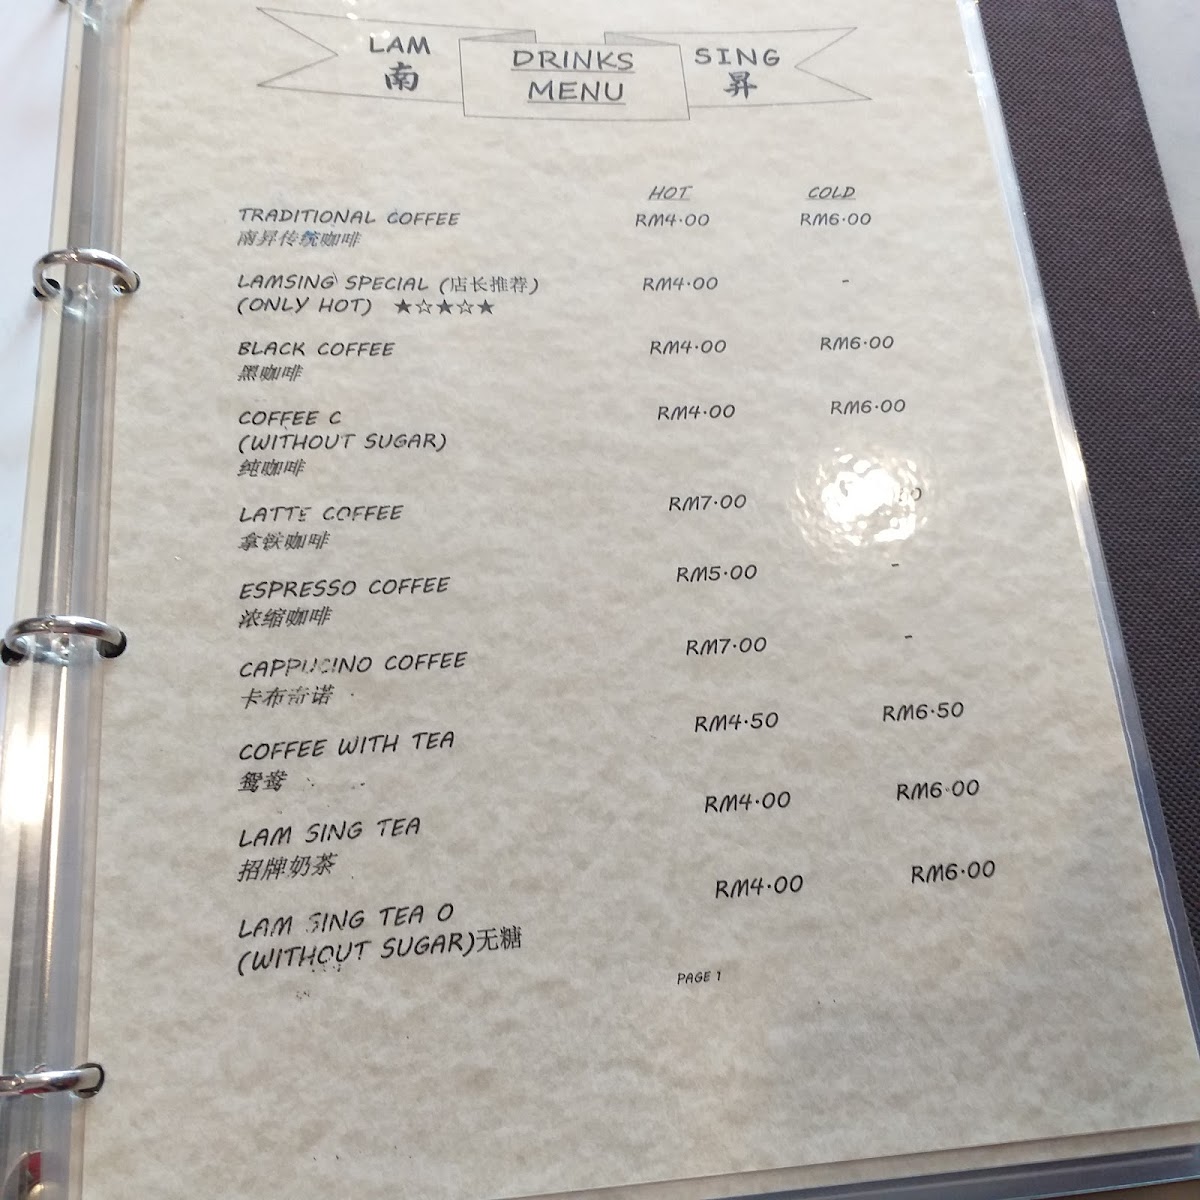 LAM 南 DRINKS MENU SING 昇
HOT COLD
TRADITIONAL COFFEE RM4.00 RM6.00
南昇传统咖啡
LAMSING SPECIAL (店长推荐) RM4.00 -
(ONLY HOT) ★☆★☆★
BLACK COFFEE RM4.00 RM6.00
黑咖啡
COFFEE C RM4.00 RM6.00
(WITHOUT SUGAR)
纯咖啡
LATTE COFFEE RM7.00
拿铁咖啡
ESPRESSO COFFEE RM5.00 -
浓缩咖啡
CAPPUCINO COFFEE RM7.00 -
卡布奇诺
COFFEE WITH TEA RM4.50 RM6.50
鸳鸯
LAM SING TEA RM4.00 RM6.00
招牌奶茶
LAM SING TEA O RM4.00 RM6.00
(WITHOUT SUGAR)无糖
PAGE 1